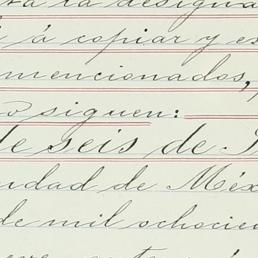 la designa
á copiar y es
mencionados,
siguen:
de seis de
udad de Méx
de mil ochocien